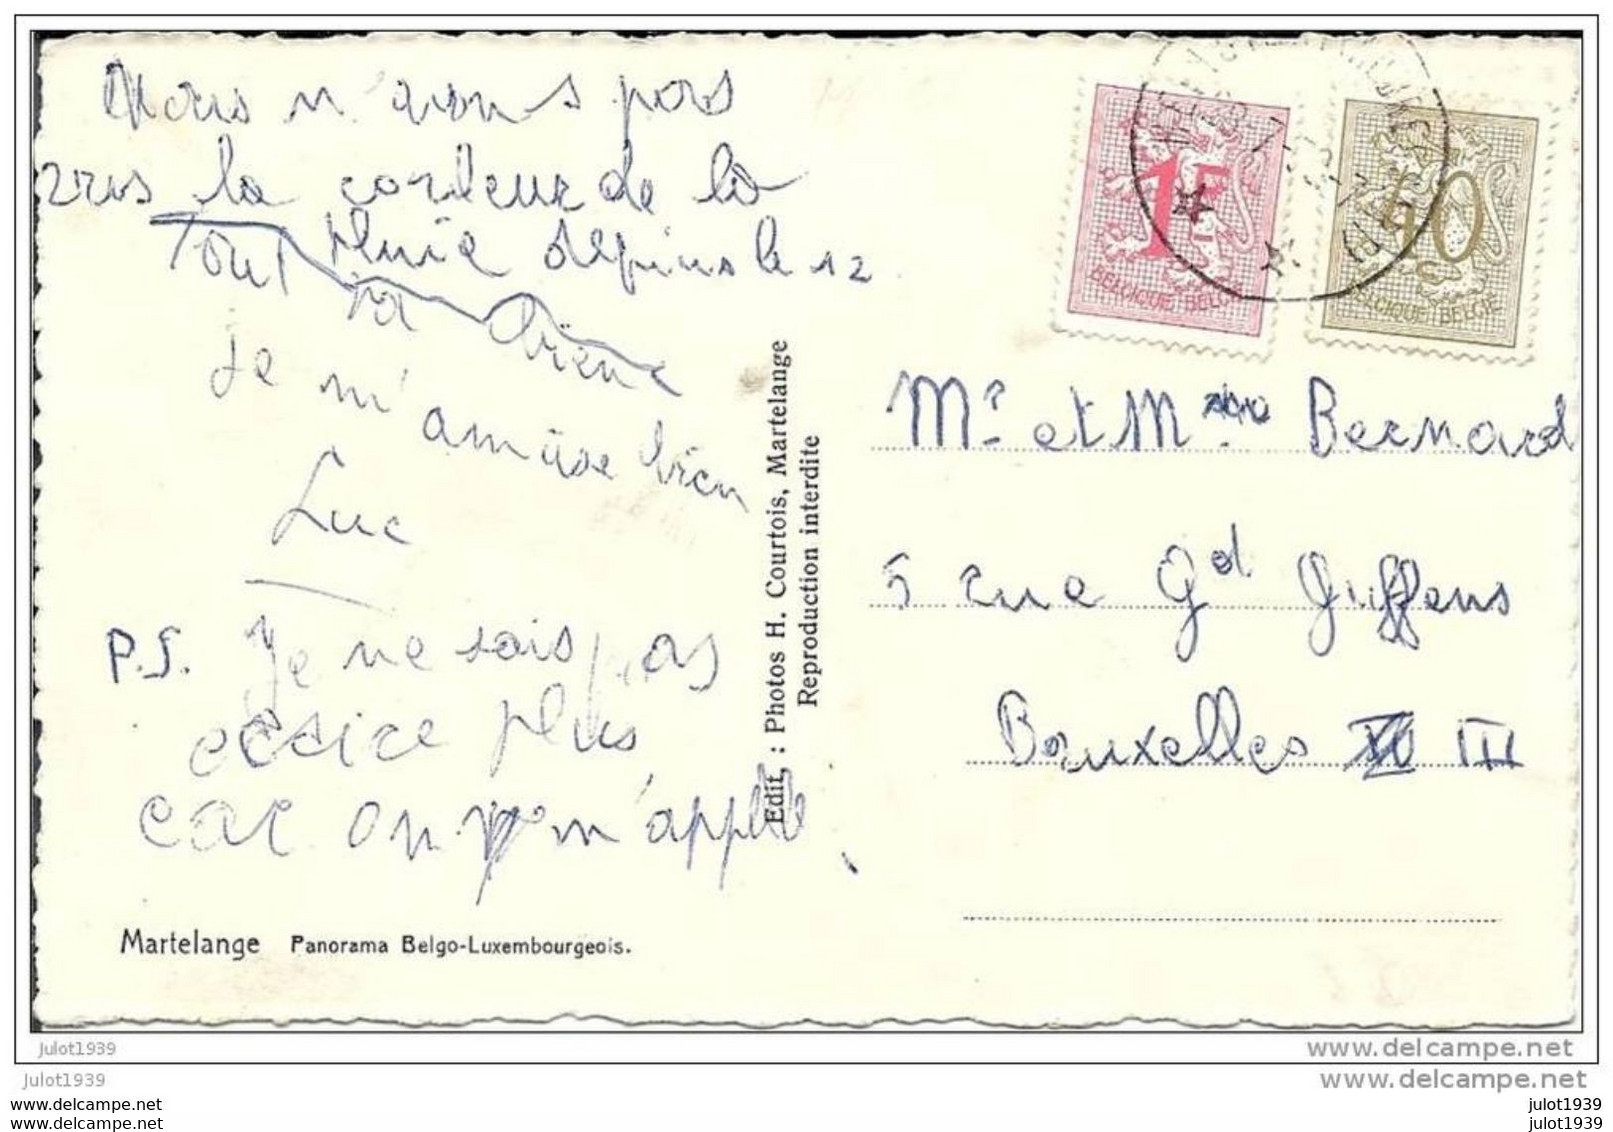 Nous n'avons pas
vus la couleur de la
pluie depuis le 12
Tout va bien
je m'amuse bien
Luc
P.S. Je ne sais pas
ecrire plus
car on m'appelle
Martelange Panorama Belgo-Luxembourgeois.
Edit. : Photos H. Courtois, Martelange
Reproduction interdite
1F
BELGIQUE BELGIE
40
BELGIQUE BELGIE
Mr et Mme Bernard
5 rue Gd Giffens
Bruxelles III
julot1939
julot1939
www.delcampe.net
www.delcampe.net
www.delcampe.net
www.delcampe.net
julot1939
julot1939